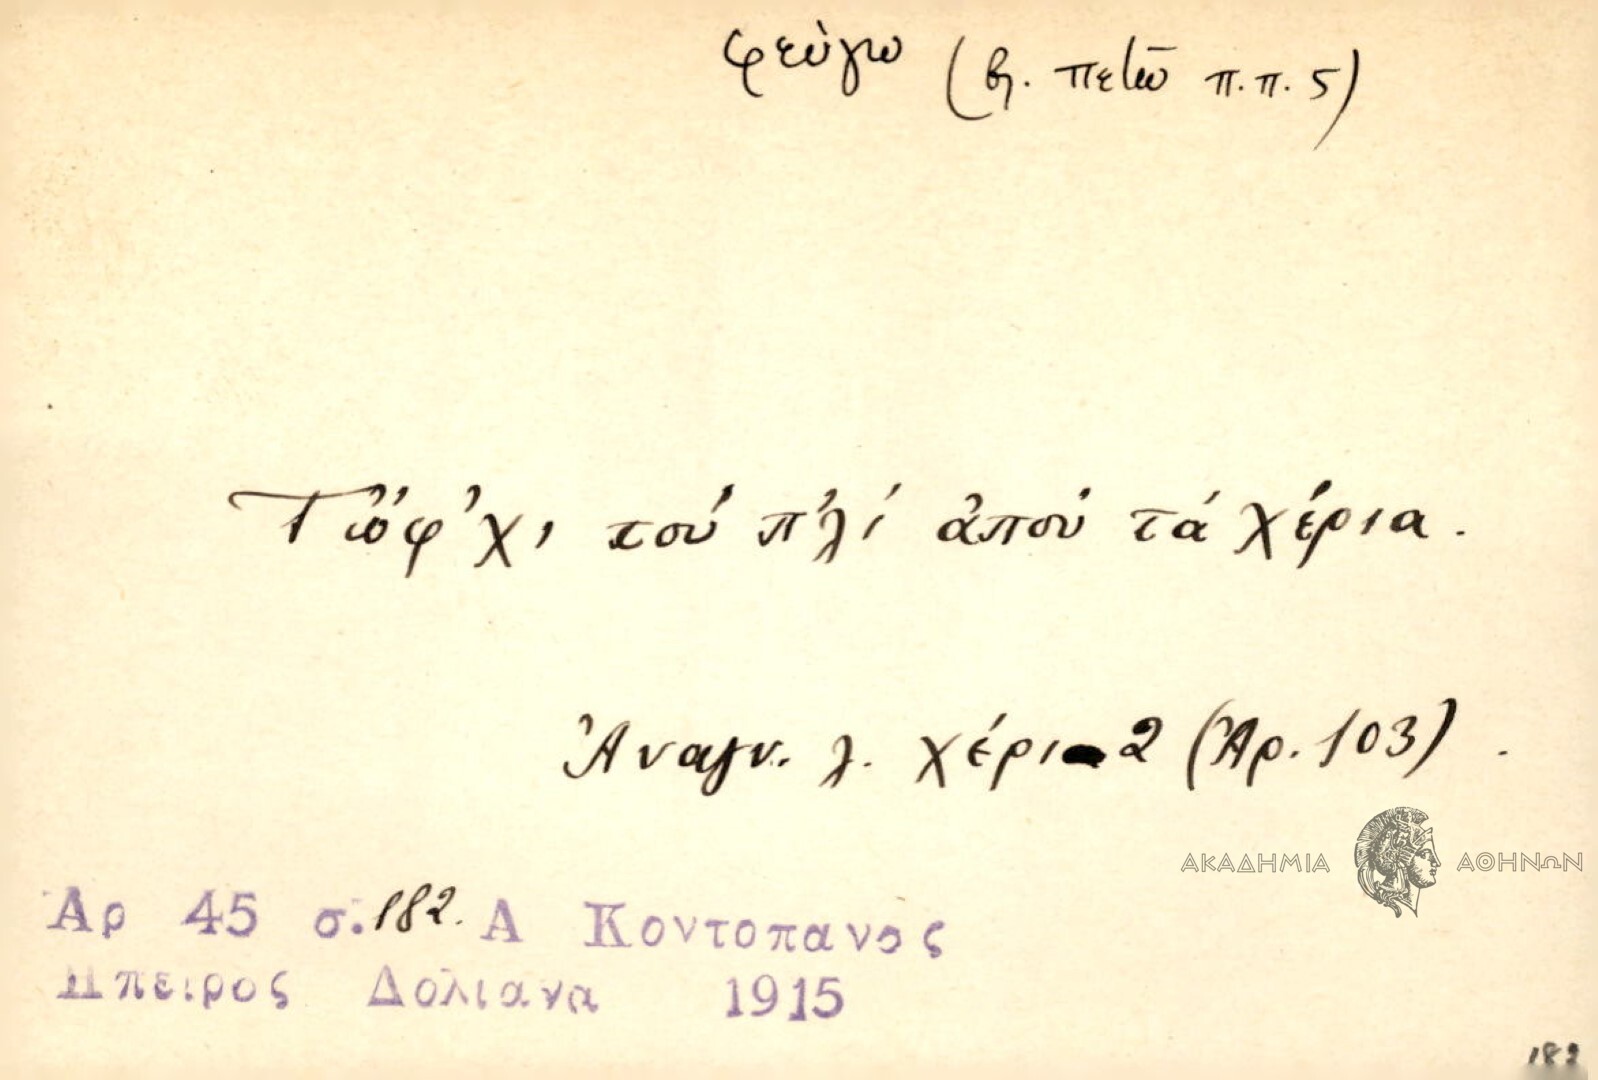 φεύγω (βλ. πετῶ π.π. 5)
Τὤφ'χι τοὺ π'λὶ ἀποὺ τὰ χέρια.
Ἀναγν. λ. χέρι 2 (Ἀρ. 103).
ΑΚΑΔΗΜΙΑ ΑΘΗΝΩΝ
Αρ 45 σ. 182. Α Κοντοπανος
Ηπειρος Δολιανα 1915